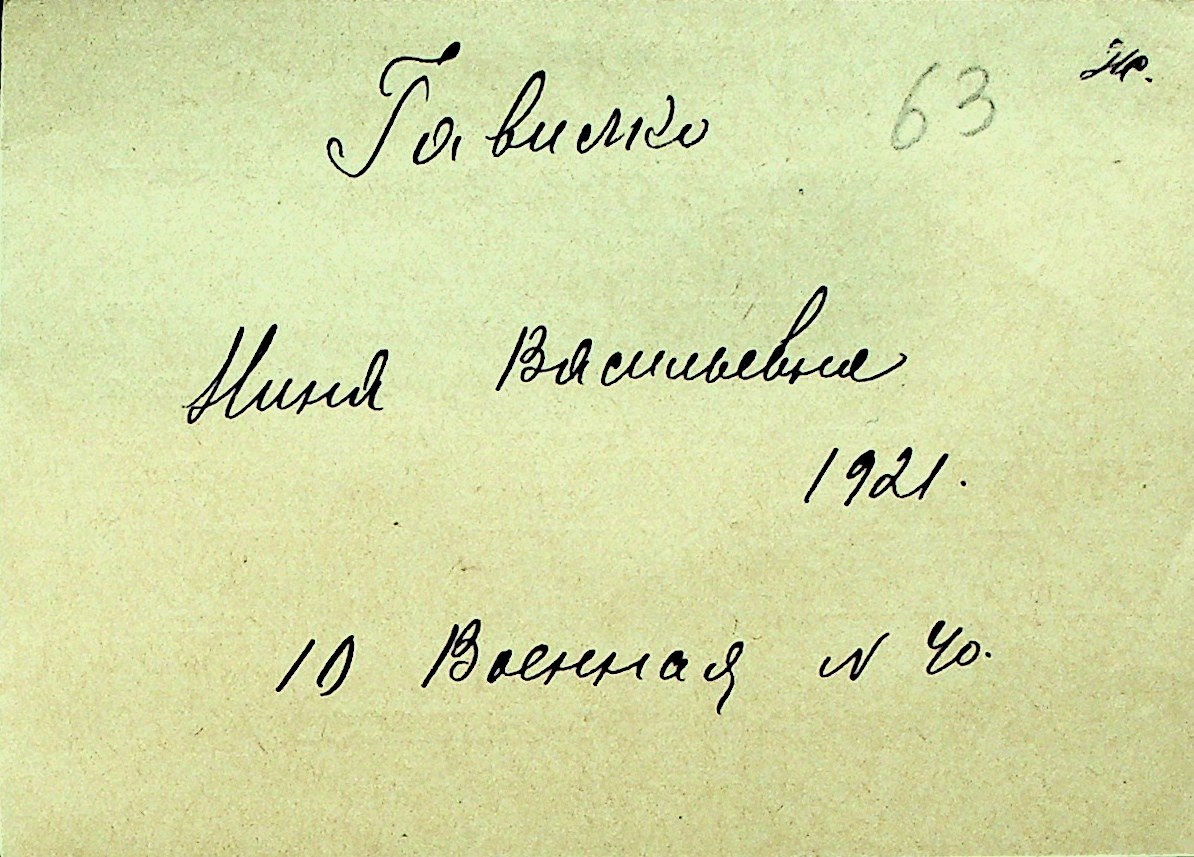 63
Гавилко
Нина Васильевна
1921.
10 Военная N 40.